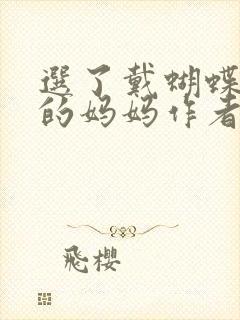 選了戴蝴蝶
的妈妈作者
飛櫻